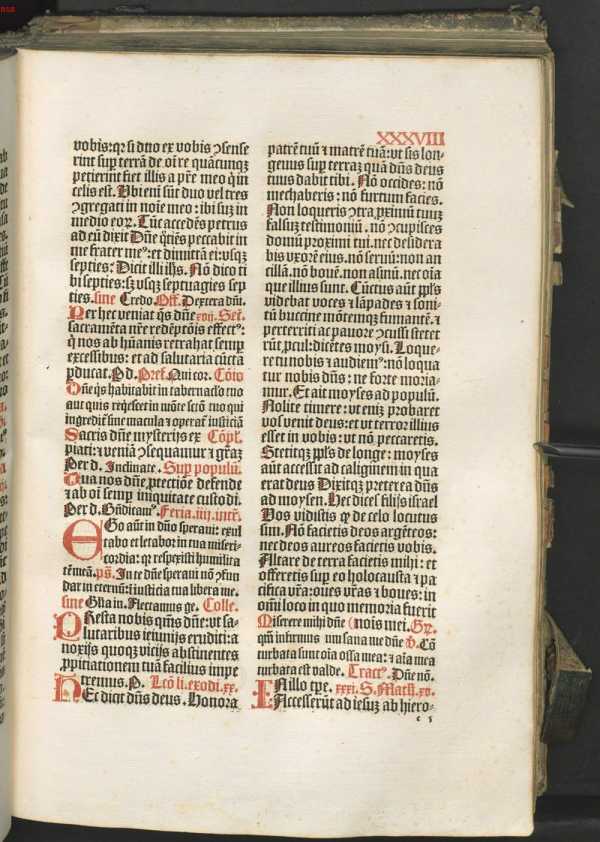 XXXVIII
vobis: qr si duo ex vobis ꝯsense
rint sup̱ terrā de oīre quācunqꝫ
petierint fiet illis a pr̄e meo q̇ in
celis est. Ubi enī sūt duo vel tres
ꝯgregati in noīe meo: ibi suꝫ in
medio eoꝝ. Tūc accedēs petrus
ad eū dixit Dn̄e q̇tiēs peccabit in
me frater meꝰ: et dimittā ei: vsqꝫ
septies: Dicit illi ih̄s. Nō dico ti
bi septies: sꝫ vsqꝫ septuagies sep
ties. sine Credo. Off. Dextera dn̄i.
Per hec veniat q̄s dn̄e xvij. Secr̄.
sacramēta nr̄e redēptōis effectꝰ:
q̇ nos ab hūanis retrahat semꝑ
excessibus: et ad salutaria cūcta
ꝑducat. P d. Pref. Qui cor. Cōio
Dn̄e q̇s habitabit in tabernac̄lo tuo
aut quis req̇escet in mōte sct̄o tuo qui
ingredit̄ sine macula ⁊ operat̄ insticiā
Sacris dn̄e mysterijs ex Cōpl̄.
piati: ⁊ veniā ꝯsequamur ⁊ gr̄aꝫ
Per d. Inclinate. Suꝑ populū.
Tua nos dn̄e ꝓtectiōe defende
⁊ ab oī semꝑ iniquitate custodi.
Per d. Bn̄dicamꝰ. Feria .iiij. intr̄.
EGo aūt in dn̄o speraui: exul
tabo et letabor in tua miseri
cordia: qr respexisti humilita
tē meā. ps̄. In te dn̄e speraui nō ꝯfun
dar in eternū: ī iusticia tua libera me.
sine Gl̄ia in. Flectamus ge. Colle.
PResta nobis qn̄s dn̄e: vt sa-
lutaribus ieiunijs eruditi: a
noxijs quoqꝫ vicijs abstinentes
ꝓpiciationem tuā facilius impe
tremus. P. Lcō li. exodi .xx.
HEc dicit dn̄s deus. Honora
patrē tuū ⁊ matrē tuā: vt sis lon-
geuus suꝑ terraꝫ quā dn̄s deus
tuus dabit tibi. Nō occides: nō
mechaberis: nō furtum facies.
Non loqueris ꝯtra ꝓximū tuuꝫ
falsuꝫ testimoniū. nō ꝯcupisces
domū proximi tui. nec desidera
bis vxorē eius. nō seruū: non an
cillā. nō bouē. non asinū. nec oīa
que illius sunt. Cūctus aūt ppl̄s
videbat voces ⁊ lāpades ⁊ soni-
tū buccine mōtemqꝫ fumantē. ⁊
perterriti ac pauore ꝯcussi stetet
rūt ꝓcul: dicētes moysi. Loque-
re tu nobis ⁊ audiemꝰ: nō loqua
tur nobis dn̄s: ne forte moria-
mur. Et ait moyses ad populū.
Nolite timere: vt eniꝫ probaret
vos venit deus: et vt terror illius
esset in vobis: vt nō peccaretis.
Stetitqꝫ ppl̄s de longe: moyses
aūt accessit ad caliginem in qua
erat deus Dixitqꝫ preterea dn̄s
ad moysen. Hec dices filijs israel
Vos vidistis ꝙ de celo locutus
sim. Nō facietis deos argēteos:
nec deos aureos facietis vobis.
Altare de terra facietis mihi: et
offeretis suꝑ eo holocausta ⁊ pa
cifica vr̄a: oues vr̄as ⁊ boues: in
omi loco in quo memoria fuerit
Miserere mihi dn̄e (nois mei. Gr̄.
qm̄ infirmus sum sana me dn̄e ℣. Cō
turbata sunt oīa ossa mea: ⁊ aīa mea
turbata est valde. Tractꝰ. Dn̄e nō.
IN illo tꝑe. xxxi. S. Math. xv.
Accesserūt ad iesuꝫ ab hiero-
c 5